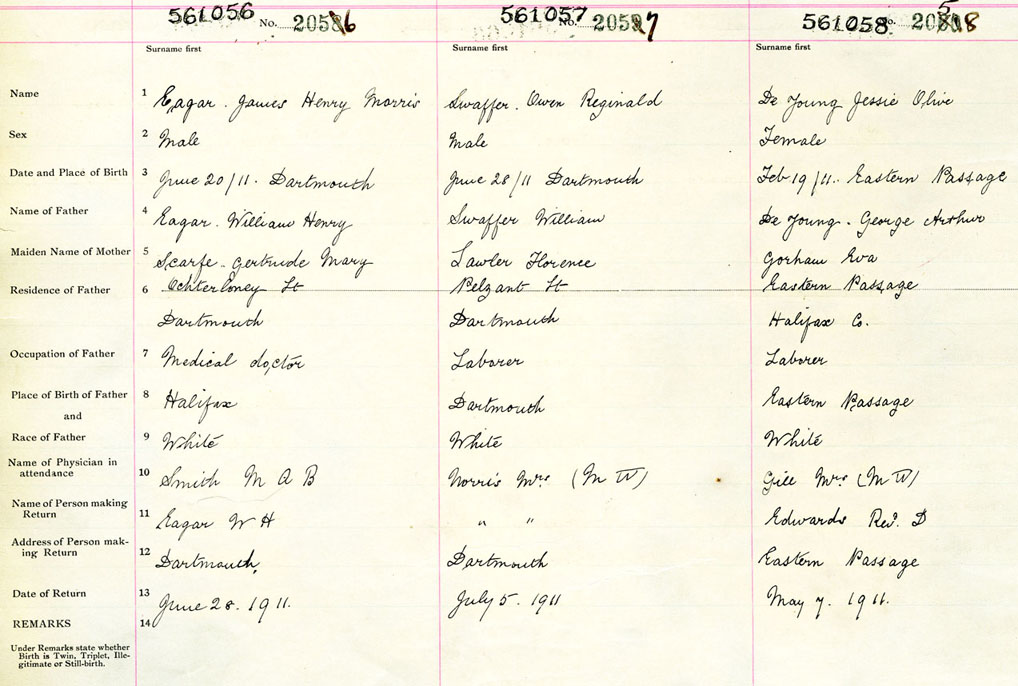 561056 561057 561058
No. 205 6 No. 205 7 No. 20 8
Surname first Surname first Surname first
Name 1 Eagar. James Henry Morris Swaffer. Owen Reginald De Young Jessie Olive
Sex 2 Male Male Female
Date and Place of Birth 3 June 20/11. Dartmouth June 28/11 Dartmouth Feb 19/11. Eastern Passage
Name of Father 4 Eagar. William Henry Swaffer William De Young. George Arthur
Maiden Name of Mother 5 Scarfe. Gertrude Mary Lawler Florence Gorham Eva
Residence of Father 6 Ochterloney St Pelzant St Eastern Passage
Dartmouth Dartmouth Halifax Co.
Occupation of Father 7 Medical doctor Laborer Laborer
Place of Birth of Father 8 Halifax Dartmouth Eastern Passage
and
Race of Father 9 White White White
Name of Physician in
attendance 10 Smith M A B Norris Mrs (M W) Gill Mrs (M W)
Name of Person making
Return 11 Eagar W H " " Edwards Rev. D
Address of Person mak-
ing Return 12 Dartmouth. Dartmouth Eastern Passage
Date of Return 13 June 28. 1911. July 5. 1911 May 7. 1911.
REMARKS 14
Under Remarks state whether
Birth is Twin, Triplet, Ille-
gitimate or Still-birth.